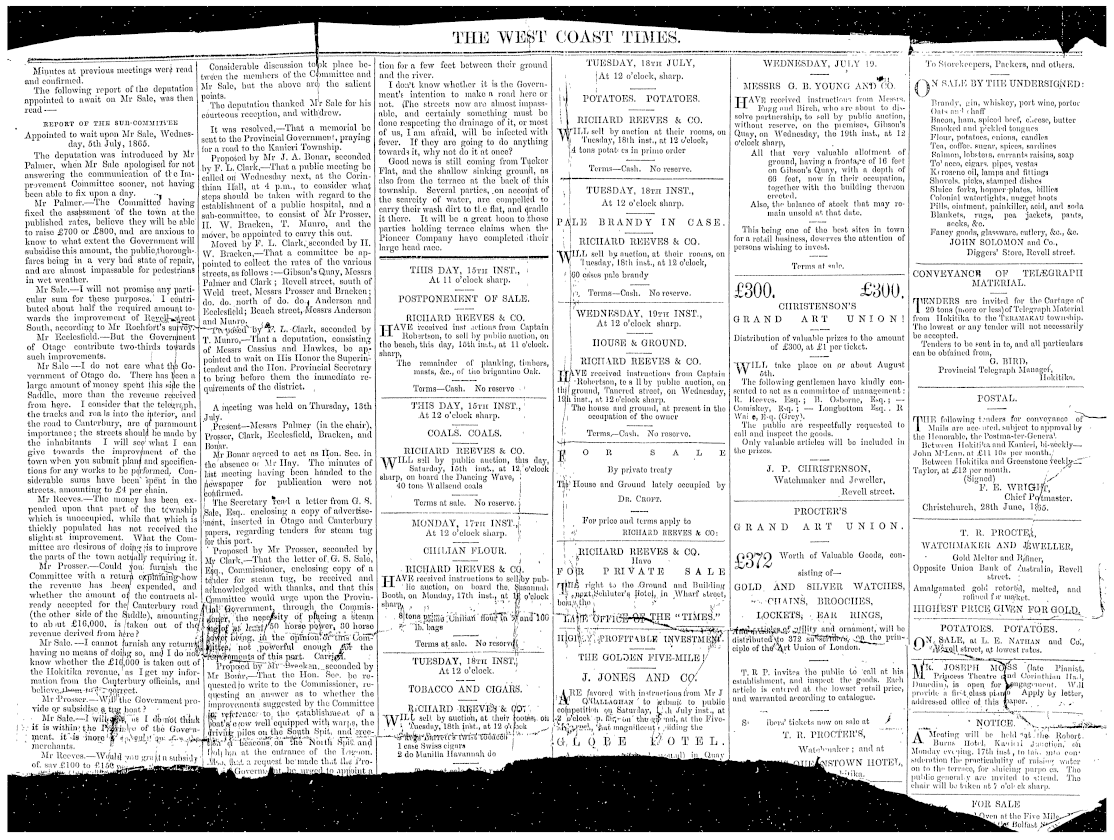 THE WEST COAST TIMES.
Minutes at previous meetings were read
and confirmed.
The following report of the deputation
appointed to await on Mr Sale, was then
read —
REPORT OF THE SUB-COMMITTEE
Appointed to wait upon Mr Sale, Wednes-
day, 5th July, 1865.
The deputation was introduced by Mr
Palmer, when Mr Sale apologised for not
answering the communication of the Im-
provement Committee sooner, not having
been able to fix upon a day.
Mr Palmer.—The Committee having
fixed the assessment of the town at the
published rates, believe they will be able
to raise £700 or £800, and are anxious to
know to what extent the Government will
subsidise this amount, the public thorough-
fares being in a very bad state of repair,
and are almost impassable for pedestrians
in wet weather.
Mr Sale.—I will not promise any parti-
cular sum for these purposes. I contri-
buted about half the required amount to-
wards the improvement of Revell street
South, according to Mr Rochfort's survey.
Mr Ecclesfield.—But the Government
of Otago contribute two-thirds towards
such improvements.
Mr Sale—I do not care what the Go-
vernment of Otago do. There has been a
large amount of money spent this side the
Saddle, more than the revenue received
from here. I consider that the telegraph,
the tracks and roads into the interior, and
the road to Canterbury, are of paramount
importance; the streets should be made by
the inhabitants I will see what I can
give towards the improvement of the
town when you submit plans and specifica-
tions for any works to be performed. Con-
siderable sums have been spent in the
streets, amounting to £4 per chain.
Mr Reeves.—The money has been ex-
pended upon that part of the township
which is unoccupied, while that which is
thickly populated has not received the
slightest improvement. What the Com-
mittee are desirous of doing is to improve
the parts of the town actually requiring it.
Mr Prosser.—Could you furnish the
Committee with a return explaining how
the revenue has been expended, and
whether the amount of the contracts al-
ready accepted for the Canterbury road
(the other side of the Saddle), amounting
to about £16,000, is taken out of the
revenue derived from here?
Mr Sale.—I cannot furnish any return,
having no means of doing so, and I do not
know whether the £16,000 is taken out of
the Hokitika revenue, as I get my infor-
mation from the Canterbury officials, and
believe them to be correct.
Mr Prosser.—Will the Government pro-
vide or subsidise a tug boat?
Mr Sale.—I will not as I do not think
it is within the of the Govern-
ment. it is more
merchants.
Mr Reeves.—Would you grant a subsidy
of, say £100 to £150
Considerable discussion took place be-
tween the members of the Committee and
Mr Sale, but the above are the salient
points.
The deputation thanked Mr Sale for his
courteous reception, and withdrew.
It was resolved,—That a memorial be
sent to the Provincial Government, praying
for a road to the Kanieri Township.
Proposed by Mr J. A. Bonar, seconded
by F. L. Clark,—That a public meeting be
called on Wednesday next, at the Corin-
thian Hall, at 4 p.m., to consider what
steps should be taken with regard to the
establishment of a public hospital, and a
sub-committee, to consist of Mr Prosser,
H. W. Bracken, T. Munro, and the
mover, be appointed to carry this out.
Moved by F. L. Clark, seconded by H.
W. Bracken,—That a committee be ap-
pointed to collect the rates of the various
streets, as follows:—Gibson's Quay, Messrs
Palmer and Clark; Revell street, south of
Weld treet, Messrs Prosser and Bracken;
do. do. north of do. do., Anderson and
Ecclesfield; Beach street, Messrs Anderson
and Munro.
Proposed by F. L. Clark, seconded by
T. Munro,—That a deputation, consisting
of Messrs Cassius and Hawkes, be ap-
pointed to wait on His Honor the Superin-
tendent and the Hon. Provincial Secretary
to bring before them the immediate re-
quirements of the district.
A meeting was held on Thursday, 13th
July.
Present—Messrs Palmer (in the chair),
Prosser, Clark, Ecclesfield, Bracken, and
Bonar.
Mr Bonar agreed to act as Hon. Sec. in
the absence of Mr Hay. The minutes of
last meeting having been handed to the
newspaper for publication were not
confirmed.
The Secretary read a letter from G. S.
Sale, Esq., enclosing a copy of advertise-
ment, inserted in Otago and Canterbury
papers, regarding tenders for steam tug
for this port.
Proposed by Mr Prosser, seconded by
Mr Clark,—That the letter of G. S. Sale,
Esq., Commissioner, enclosing copy of a
tender for steam tug, be received and
acknowledged with thanks, and that this
Committee would urge upon the Provin-
cial Government, through the Commis-
sioner, the necessity of placing a steam
tug of at least 50 horse power, 30 horse
power being, in the opinion of this Com-
mittee, not powerful enough for the
requirements of this port. Carried.
Proposed by Mr Bracken, seconded by
Mr Bonar,—That the Hon. Sec. be re-
quested to write to the Commissioner, re-
questing an answer as to whether the
improvements suggested by the Committee
in reference to the establishment of a
boat's crew well equipped with warps, the
driving piles on the South Spit, and erec-
tion of beacons on the North Spit and
at the entrance of the Lagoon.
Also, that a request be made that the Pro-
Government be urged to appoint a
tion for a few feet between their ground
and the river.
I don't know whether it is the Govern-
ment's intention to make a road here or
not. The streets now are almost impass-
able, and certainly something must be
done respecting the drainage of it, or most
of us, I am afraid, will be infected with
fever. If they are going to do anything
towards it, why not do it at once?
Good news is still coming from Tucker
Flat, and the shallow sinking ground, as
also from the terrace at the back of this
township. Several parties, on account of
the scarcity of water, are compelled to
carry their wash dirt to the flat, and cradle
it there. It will be a great boon to those
parties holding terrace claims when the
Pioneer Company have completed their
large head race.
THIS DAY, 15TH INST.,
At 11 o'clock sharp.
POSTPONEMENT OF SALE.
RICHARD REEVES & CO.
HAVE received instructions from Captain
Robertson, to sell by public auction, on
the beach, this day, 15th inst., at 11 o'clock.
sharp,
The remainder of planking, timbers,
masts, &c., of the brigantine Oak.
Terms—Cash. No reserve
THIS DAY, 15TH INST.,
At 12 o'clock, sharp.
COALS. COALS.
RICHARD REEVES & CO.
WILL sell by public auction, this day,
Saturday, 15th inst., at 12 o'clock
sharp, on board the Dancing Wave,
40 tons Wallsend coals
Terms at sale. No reserve.
MONDAY, 17TH INST.,
At 12 o'clock, sharp.
CHILIAN FLOUR.
RICHARD REEVES & CO.
HAVE received instructions to sell by pub-
lic auction, on board the Susannah
Booth, on Monday, 17th inst., at 12 o'clock
sharp,
8 tons prime Chilian flour in 50 and 100
lb. bags
Terms at sale. No reserve.
TUESDAY, 18TH INST.,
At 12 o'clock, sharp.
TOBACCO AND CIGARS.
RICHARD REEVES & CO.
WILL sell by auction, at their rooms, on
Tuesday, 18th inst., at 12 o'clock
1 case Swiss cigars
2 do Manilla Havannah do
TUESDAY, 18TH JULY,
At 12 o'clock, sharp.
POTATOES. POTATOES.
RICHARD REEVES & CO.
WILL sell by auction at their rooms, on
Tuesday, 18th inst., at 12 o'clock,
4 tons potatoes in prime order
Terms—Cash. No reserve.
TUESDAY, 18TH INST.,
At 12 o'clock, sharp.
PALE BRANDY IN CASE.
RICHARD REEVES & CO.
WILL sell by auction, at their rooms, on
Tuesday, 18th inst., at 12 o'clock,
60 cases pale brandy
Terms—Cash. No reserve.
WEDNESDAY, 19TH INST.,
At 12 o'clock, sharp.
HOUSE & GROUND.
RICHARD REEVES & CO.
HAVE received instructions from Captain
Robertson, to sell by public auction, on
the ground, Tancred street, on Wednesday,
19th inst., at 12 o'clock sharp,
The house and ground, at present in the
occupation of the owner
Terms,—Cash. No reserve.
FOR SALE
By private treaty
The House and Ground lately occupied by
DR. CROFT.
For price and terms apply to
RICHARD REEVES & CO.
RICHARD REEVES & CO.
Have
FOR PRIVATE SALE
THE right to the Ground and Building
next Schluter's Hotel, in Wharf street,
being the
LATE OFFICE OF THE "TIMES."
HIGHLY PROFITABLE INVESTMENT.
THE GOLDEN FIVE-MILE!
J. JONES AND CO.
ARE favored with instructions from Mr J
O'CALLAGHAN to submit to public
competition on Saturday, July inst., at
2 o'clock p.m., on the ground, at the Five-
that magnificent building the
GLOBE HOTEL.
WEDNESDAY, JULY 19.
MESSRS G. B. YOUNG AND CO.
HAVE received instructions from Messrs.
Fagg and Birch, who are about to dis-
solve partnership, to sell by public auction,
without reserve, on the premises, Gibson's
Quay, on Wednesday, the 19th inst., at 12
o'clock sharp,
All that very valuable allotment of
ground, having a frontage of 16 feet
on Gibson's Quay, with a depth of
66 feet, now in their occupation,
together with the building thereon
erected.
Also, the balance of stock that may re-
main unsold at that date.
This being one of the best sites in town
for a retail business, deserves the attention of
persons wishing to invest.
Terms at sale.
£300. £300.
CHRISTENSON'S
GRAND ART UNION!
Distribution of valuable prizes to the amount
of £300, at £1 per ticket.
WILL take place on or about August
5th.
The following gentlemen have kindly con-
sented to act as a committee of management:—
R. Reeves, Esq.; B. Osborne, Esq.; —
Comiskey, Esq.; — Longbottom Esq.. R
Waite, Esq. (Grey).
The public are respectfully requested to
call and inspect the goods.
Only valuable articles will be included in
the prizes.
J. P. CHRISTENSON,
Watchmaker and Jeweller,
Revell street.
PROCTER'S
GRAND ART UNION.
£372 Worth of Valuable Goods, con-
sisting of—
GOLD AND SILVER WATCHES,
CHAINS, BROOCHES,
LOCKETS, EAR RINGS,
And articles of utility and ornament, will be
distributed to 372 subscribers, on the prin-
ciple of the Art Union of London.
T. R P. invites the public to call at his
establishment, and inspect the goods. Each
article is entered at the lowest retail price,
and warranted according to catalogue.
tickets now on sale at
T. R. PROCTER'S,
Watchmaker; and at
QUEENSTOWN HOTEL,
To Storekeepers, Packers, and others.
ON SALE BY THE UNDERSIGNED:
Brandy, gin, whiskey, port wine, porter
Oats and chaff
Bacon, ham, spiced beef, cheese, butter
Smoked and pickled tongues
Flour, potatoes, onions, candles
Tea, coffee, sugar, spices, sardines
Salmon, lobsters, currants raisins, soap
Tobacco, cigars, pipes, vestas
Kerosene oil, lamps and fittings
Shovels, picks, stamped dishes
Sluice forks, hopper-plates, billies
Colonial watertights, nugget boots
Pills, ointment, painkiller, acid, and soda
Blankets, rugs, pea jackets, pants,
socks, &c.
Fancy goods, glassware, cutlery, &c., &c.
JOHN SOLOMON and Co.,
Diggers' Store, Revell street.
CONVEYANCE OF TELEGRAPH
MATERIAL.
TENDERS are invited for the Cartage of
20 tons (more or less) of Telegraph Material
from Hokitika to the TERAMAKAU township.
The lowest or any tender will not necessarily
be accepted.
Tenders to be sent in to, and all particulars
can be obtained from,
G. BIRD,
Provincial Telegraph Manager,
Hokitika.
POSTAL.
THE following tenders for conveyance of
Mails are accepted, subject to approval by
the Honorable, the Postmaster-General.
Between Hokitika and Kanieri, bi-weekly—
John McLean, at £11 10s per month.
Between Hokitika and Greenstone weekly—
Taylor, at £12 per month.
(Signed)
F. E. WRIGHT,
Chief Postmaster.
Christchurch, 28th June, 1865.
T. R. PROCTER,
WATCHMAKER AND JEWELLER,
Gold Melter and Refiner,
Opposite Union Bank of Australia, Revell
street.
Amalgamated gold retorted, melted, and
refined for market.
HIGHEST PRICE GIVEN FOR GOLD.
POTATOES. POTATOES.
ON SALE, at L. E. NATHAN and Co.,
Revell street, at lowest rates.
MR. JOSEPH MOSS (late Pianist,
Princess Theatre and Corinthian Hall,
Dunedin), is open for engagement. Will
provide a first class piano Apply by letter,
addressed office of this paper.
NOTICE.
A Meeting will be held at the Robert
Burns Hotel, Kanieri Junction, on
Monday evening, 17th inst., to take into con-
sideration the practicability of raising water
on to the terrace, for sluicing purposes. The
public generally are invited to attend. The
chair will be taken at 7 o'clock sharp.
FOR SALE
Oven at the Five Mile,
the Belfast